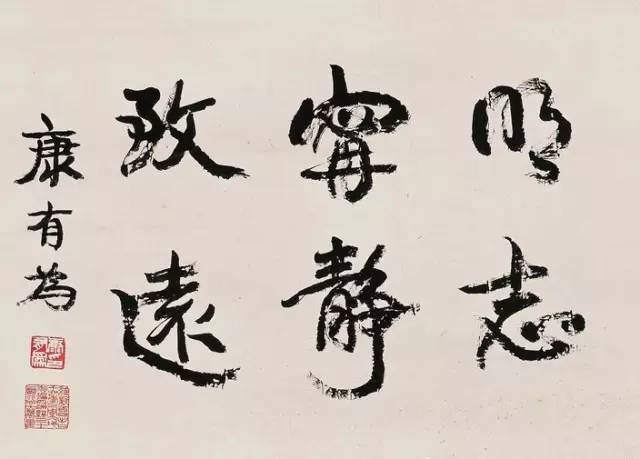 明志
甯靜
致遠
康有為